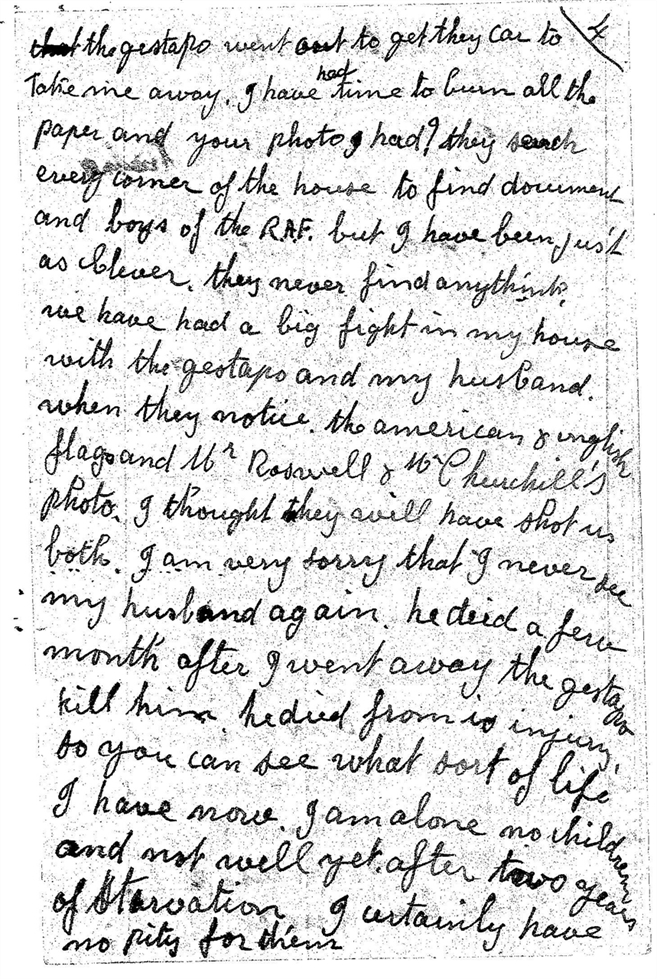 4
that the gestapo went out to get they car to
Take me away. I have had time to burn all the
paper and your photo I had? they search
every corner of the house to find document
and boys of the R.A.F. but I have been just
as Clever. they never find anythink.
we have had a big fight in my house
with the gestapo and my husband.
when they notice. the american & english
flags and Mr Roswell & Mr Churchill's
photo. I thought they will have shot us
both. I am very sorry that I never see
my husband again. he deid a few
month after I went away the gestapo
kill him. he died from is injury.
so you can see what sort of life
I have now. I am alone no children
and not well yet. after two years
of Starvation I certainly have
no pity for them